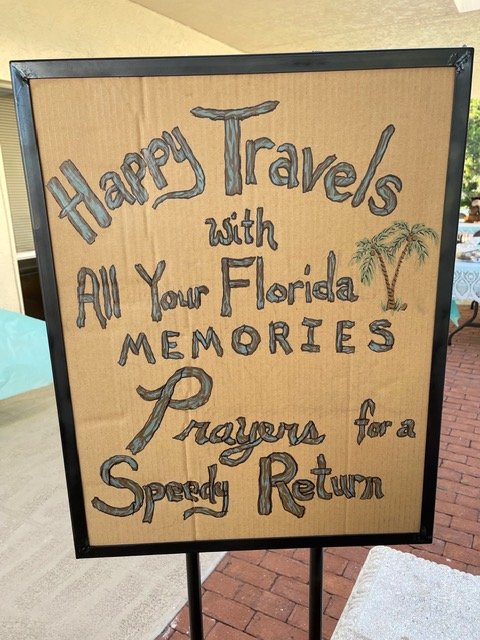 Happy Travels
with
All Your Florida
MEMORIES
Prayers for a
Speedy Return